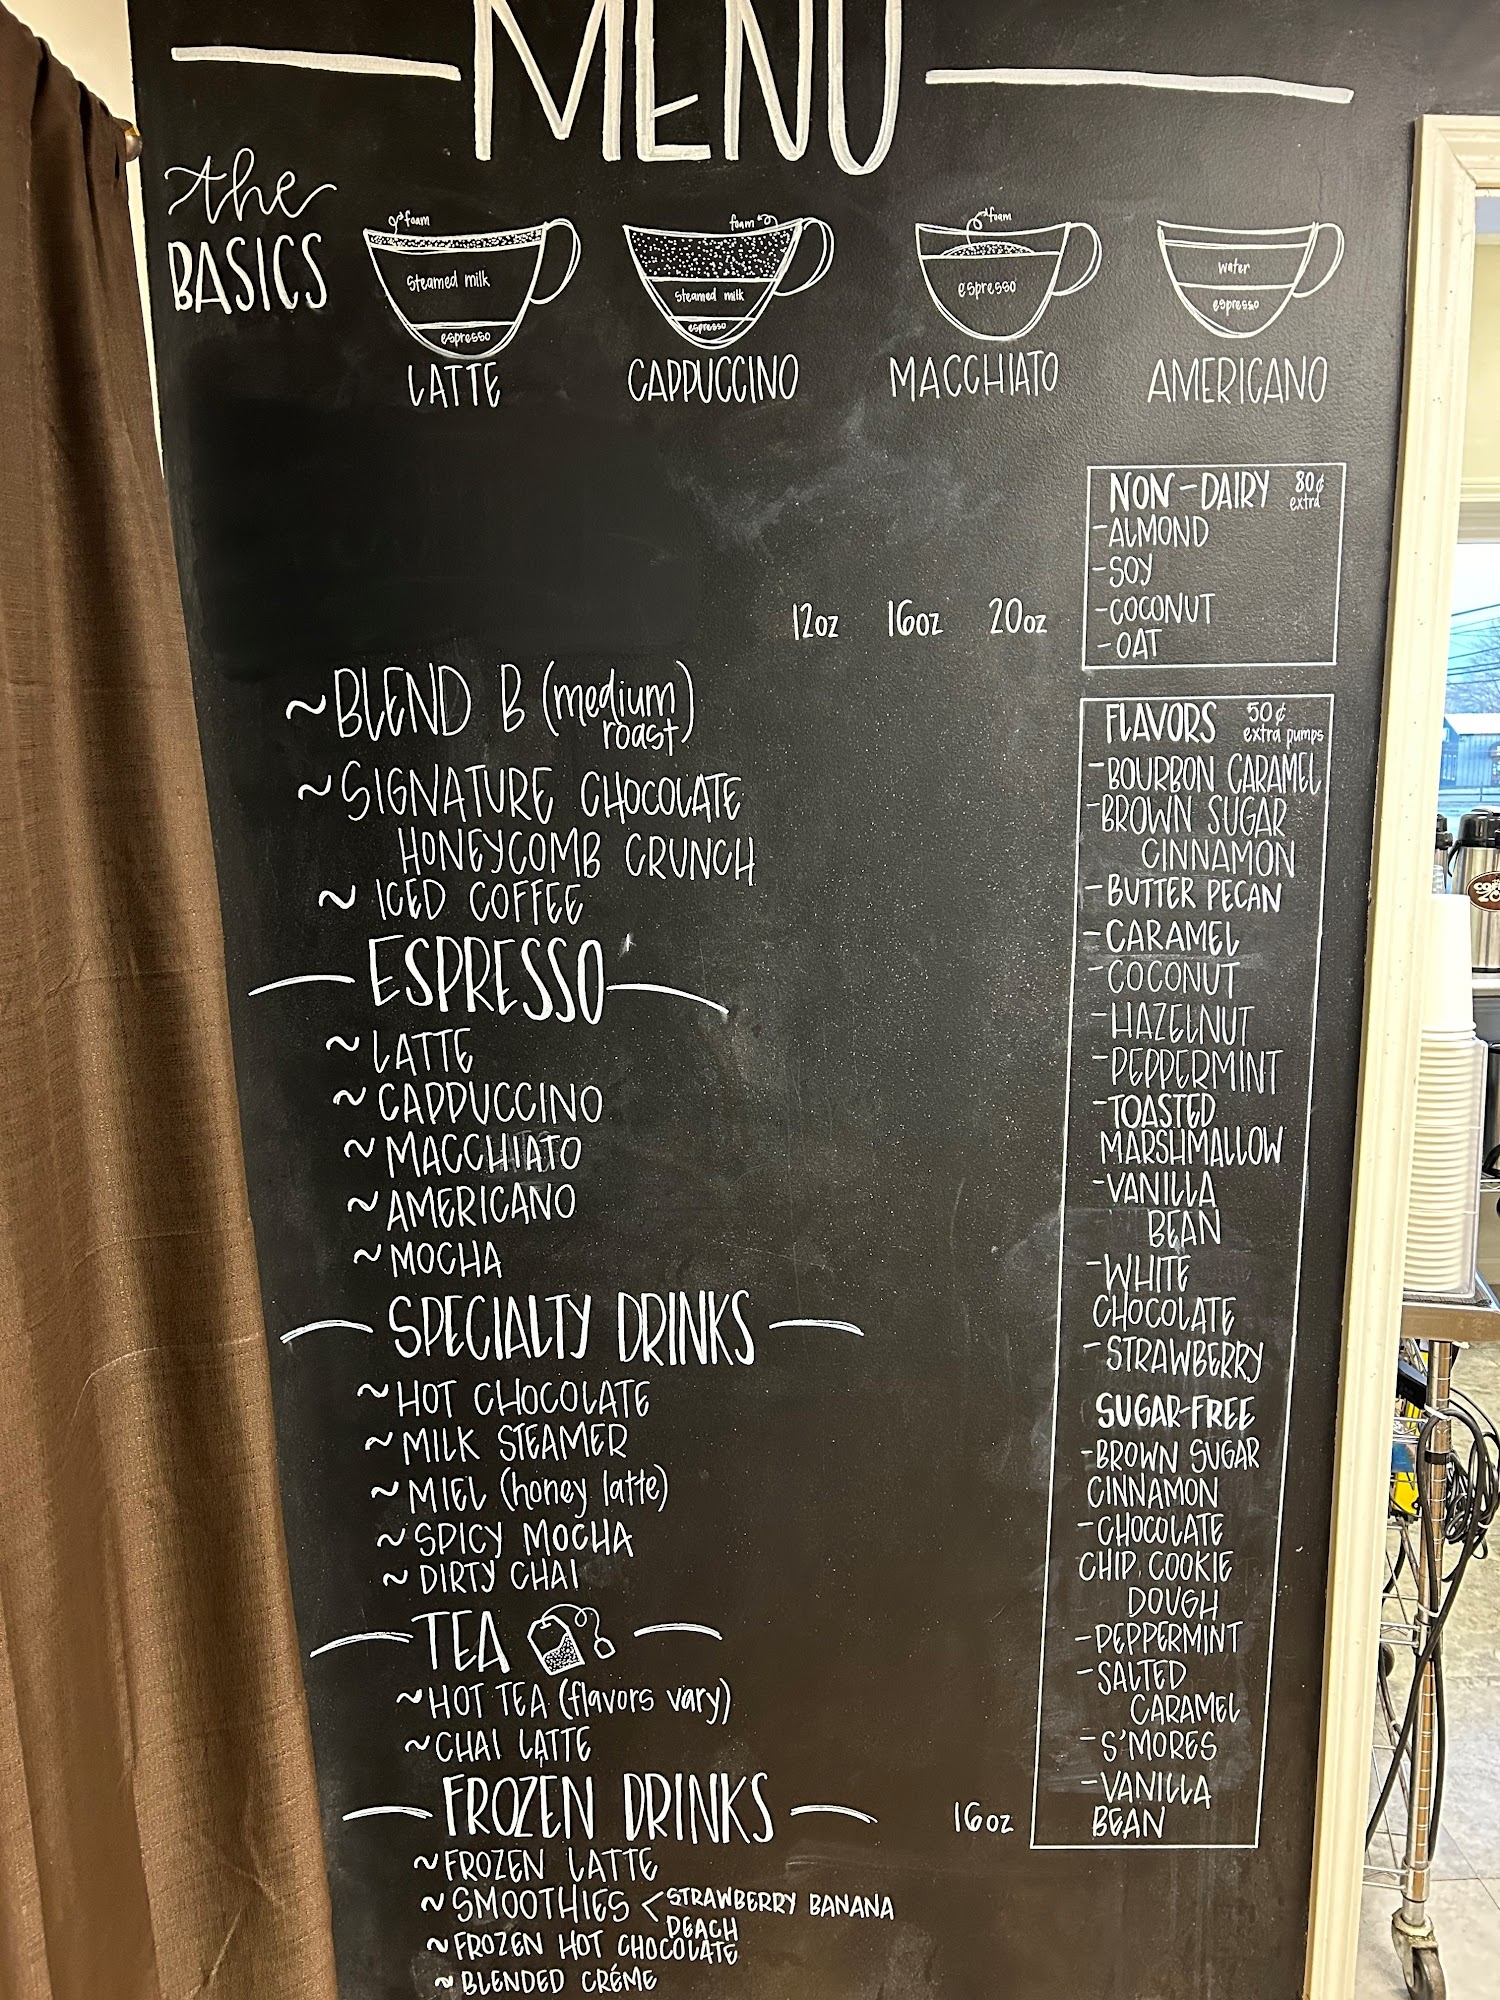 MENU
the
BASICS
foam
steamed milk
espresso
LATTE
foam
steamed milk
espresso
CAPPUCCINO
foam
espresso
MACCHIATO
water
espresso
AMERICANO
NON-DAIRY 80¢
extra
-ALMOND
-SOY
-COCONUT
-OAT
12oz 16oz 20oz
~BLEND B (medium
roast)
~SIGNATURE CHOCOLATE
HONEYCOMB CRUNCH
~ ICED COFFEE
ESPRESSO
~LATTE
~CAPPUCCINO
~MACCHIATO
~AMERICANO
~MOCHA
SPECIALTY DRINKS
~HOT CHOCOLATE
~MILK STEAMER
~MIEL (honey latte)
~SPICY MOCHA
~DIRTY CHAI
TEA
~HOT TEA (flavors vary)
~CHAI LATTE
FROZEN DRINKS 16oz
~FROZEN LATTE
~SMOOTHIES <STRAWBERRY BANANA
PEACH
~FROZEN HOT CHOCOLATE
~BLENDED CRÉME
FLAVORS 50¢
extra pumps
-BOURBON CARAMEL
-BROWN SUGAR
CINNAMON
-BUTTER PECAN
-CARAMEL
-COCONUT
-HAZELNUT
-PEPPERMINT
-TOASTED
MARSHMALLOW
-VANILLA
BEAN
-WHITE
CHOCOLATE
-STRAWBERRY
SUGAR-FREE
-BROWN SUGAR
CINNAMON
-CHOCOLATE
CHIP COOKIE
DOUGH
-PEPPERMINT
-SALTED
CARAMEL
-S'MORES
-VANILLA
BEAN